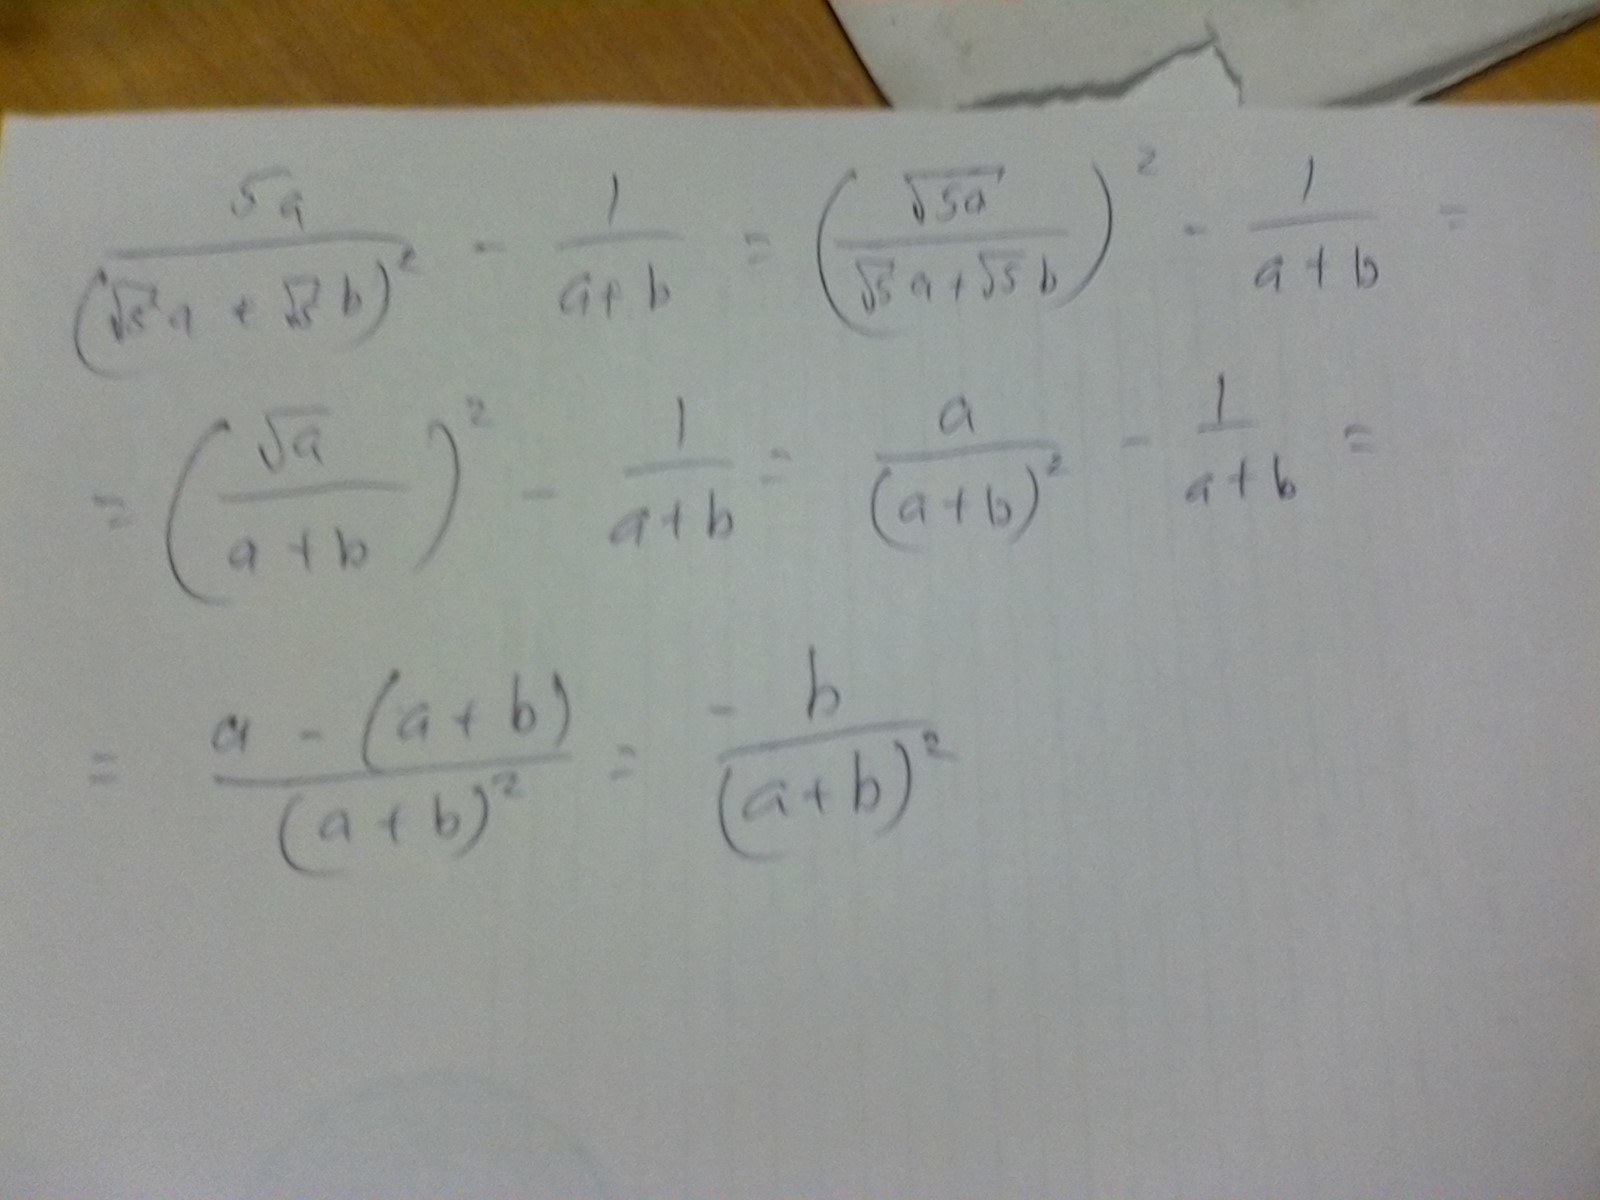 5a/(√5a + √5b)² - 1/(a+b) = (√5a/(√5a+√5b))² - 1/(a+b) =
= (√a/(a+b))² - 1/(a+b) = a/(a+b)² - 1/(a+b) =
= (a - (a+b))/(a+b)² = -b/(a+b)²